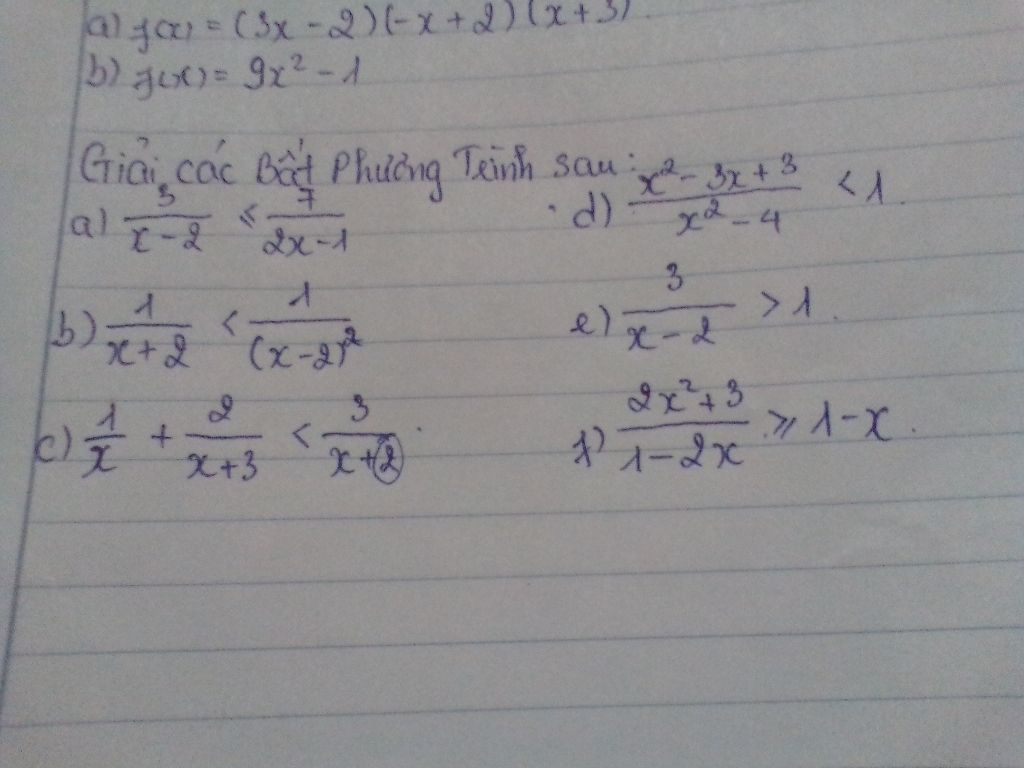 a) f(x) = (3x - 2)(-x + 2)(x + 3).
b) f(x) = 9x² - 1
Giải các Bất Phương Trình sau:
a) 3/(x - 2) ≤ 7/(2x - 1)
d) (x² - 3x + 3)/(x² - 4) < 1.
b) 1/(x + 2) < 1/(x - 2)²
e) 3/(x - 2) > 1.
c) 1/x + 2/(x + 3) < 3/(x + 2).
f) (2x² + 3)/(1 - 2x) ≥ 1 - x.